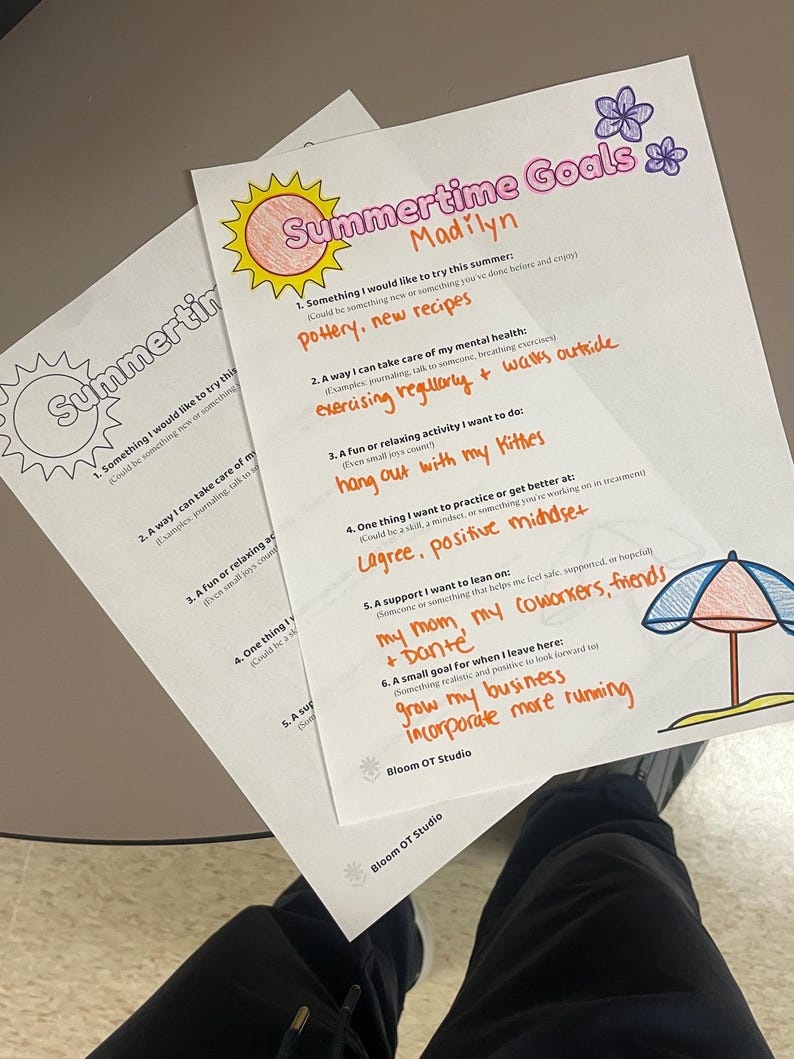 Summertime Goals
Madilyn
1. Something I would like to try this summer:
(Could be something new or something you've done before and enjoy)
pottery, new recipes
2. A way I can take care of my mental health:
(Examples: journaling, talk to someone, breathing exercises)
exercising regularly + walks outside
3. A fun or relaxing activity I want to do:
(Even small joys count!)
hang out with my kitties
4. One thing I want to practice or get better at:
(Could be a skill, a mindset, or something you're working on in treatment)
Lagree, positive mindset
5. A support I want to lean on:
(Someone or something that helps me feel safe, supported, or hopeful)
my mom, my coworkers, friends
+ Dante
6. A small goal for when I leave here:
(Something realistic and positive to look forward to)
grow my business
incorporate more running
Bloom OT Studio
Summertim
1. Something I would like to try this
(Could be something new or something
2. A way I can take care of m
(Examples: journaling, talk to so
3. A fun or relaxing ac
(Even small joys count
4. One thing I
(Could be a sk
5. A sup
(Som
Bloom OT Studio